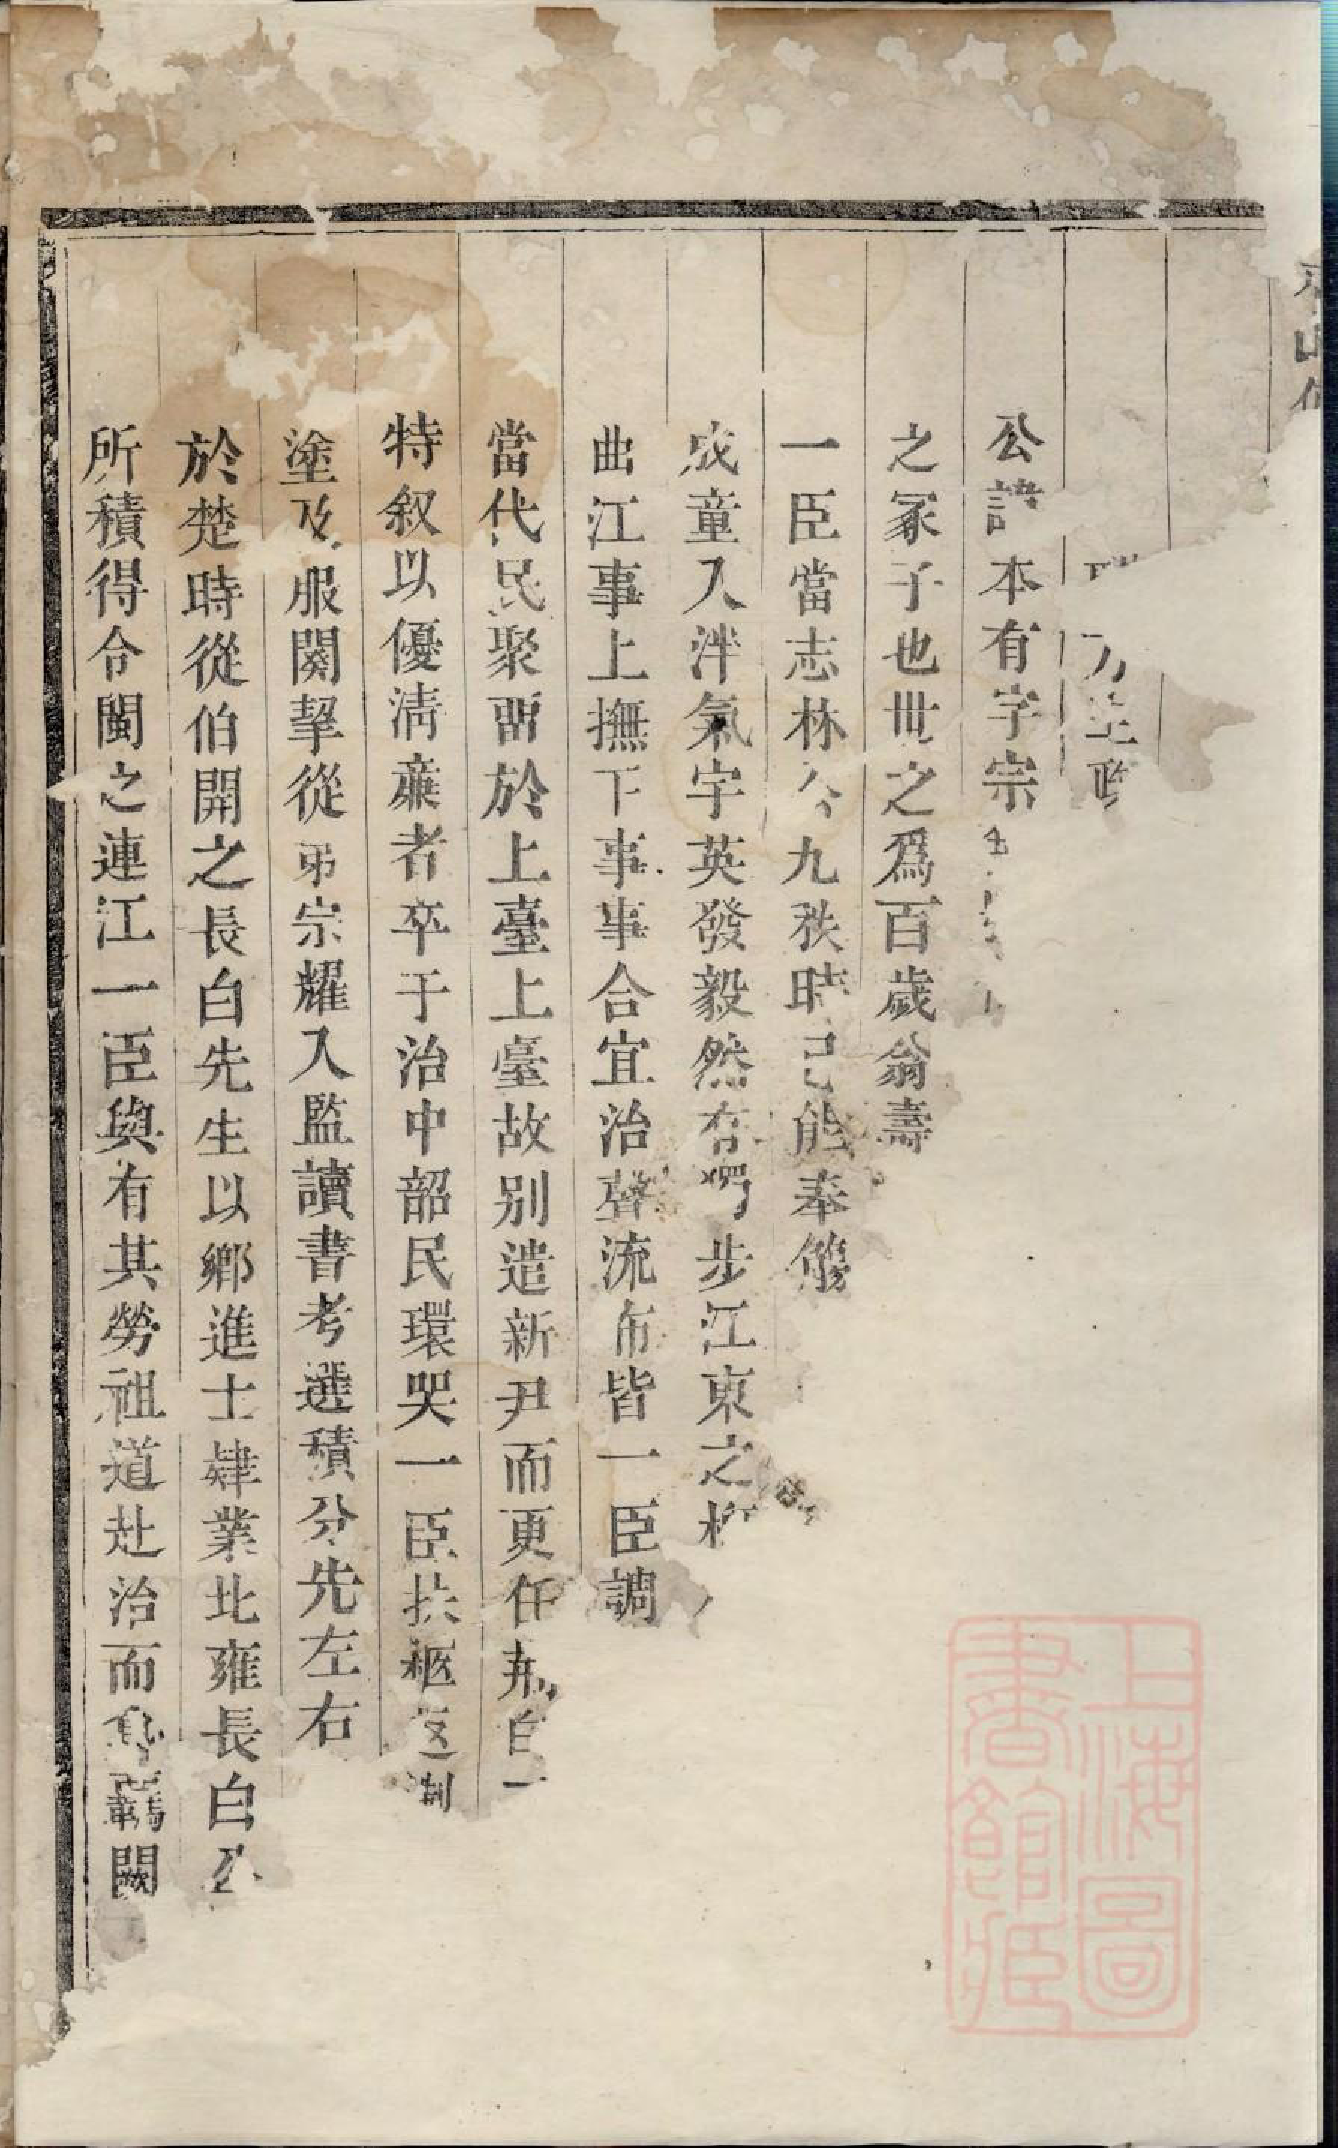 公諱本有字宗
之冢子也世之為百歲翁壽
一臣當志林公九秩時已能奉觴
成童入泮氣宇英發毅然有獨步江東之
曲江事上撫下事事合宜治聲流布皆一臣調
當代民聚留於上臺上臺故別遣新尹而更任
特叙以優清廉者卒于治中韶民環哭一臣扶柩返
塗及服闋挈從弟宗耀入監讀書考選積分先左右
於楚時從伯開之長白先生以鄉進士肄業北雍長白公
所積得令閩之連江一臣與有其勞祖道赴治而身羈闕
上海圖書館藏